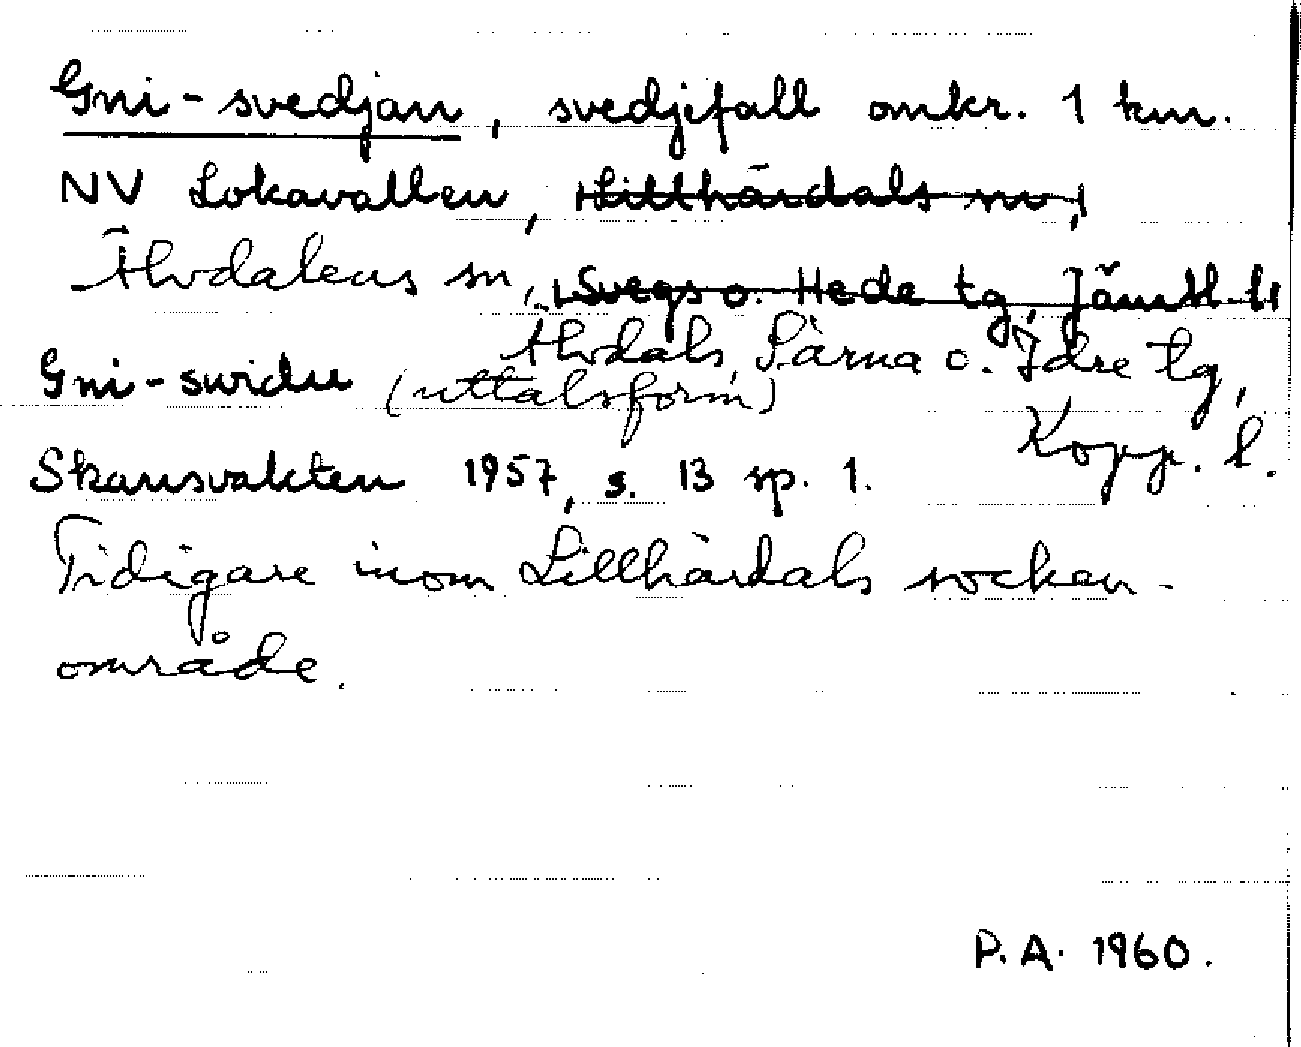 Gni-svedjan, svedjefall omkr. 1 km.
NV Lokavallen, Lillhärdals sn,
Älvdalens sn, Svegs o. Hede tg, Jämtl. l.
Älvdals, Särna o. Idre tg,
Gni-swidu (uttalsform)
Kopp. l.
Skansvakten 1957, s. 13 sp. 1.
Tidigare inom Lillhärdals socken-
område.
P.A. 1960.